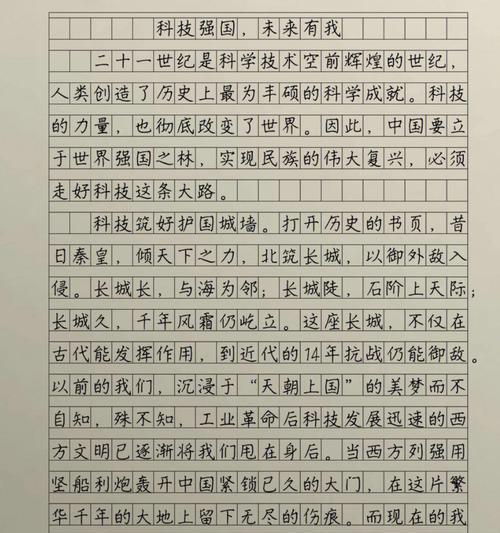 科技强国，未来有我
二十一世纪是科学技术空前辉煌的世纪，
人类创造了历史上最为丰硕的科学成就。科技
的力量，也彻底改变了世界。因此，中国要立
于世界强国之林，实现民族的伟大复兴，必须
走好科技这条大路。
科技筑好护国城墙。打开历史的书页，昔
日秦皇，倾天下之力，北筑长城，以御外敌入
侵。长城长，与海为邻；长城陡，石阶上天际；
长城久，千年风霜仍屹立。这座长城，不仅在
古代能发挥作用，到近代的14年抗战仍能御敌。
以前的我们，沉浸于“天朝上国”的美梦而不
自知，殊不知，工业革命后科技发展迅速的西
方文明已逐渐将我们甩在身后。当西方列强用
坚船利炮轰开中国紧锁已久的大门，在这片繁
华千年的大地上留下无尽的伤痕。而现在的我